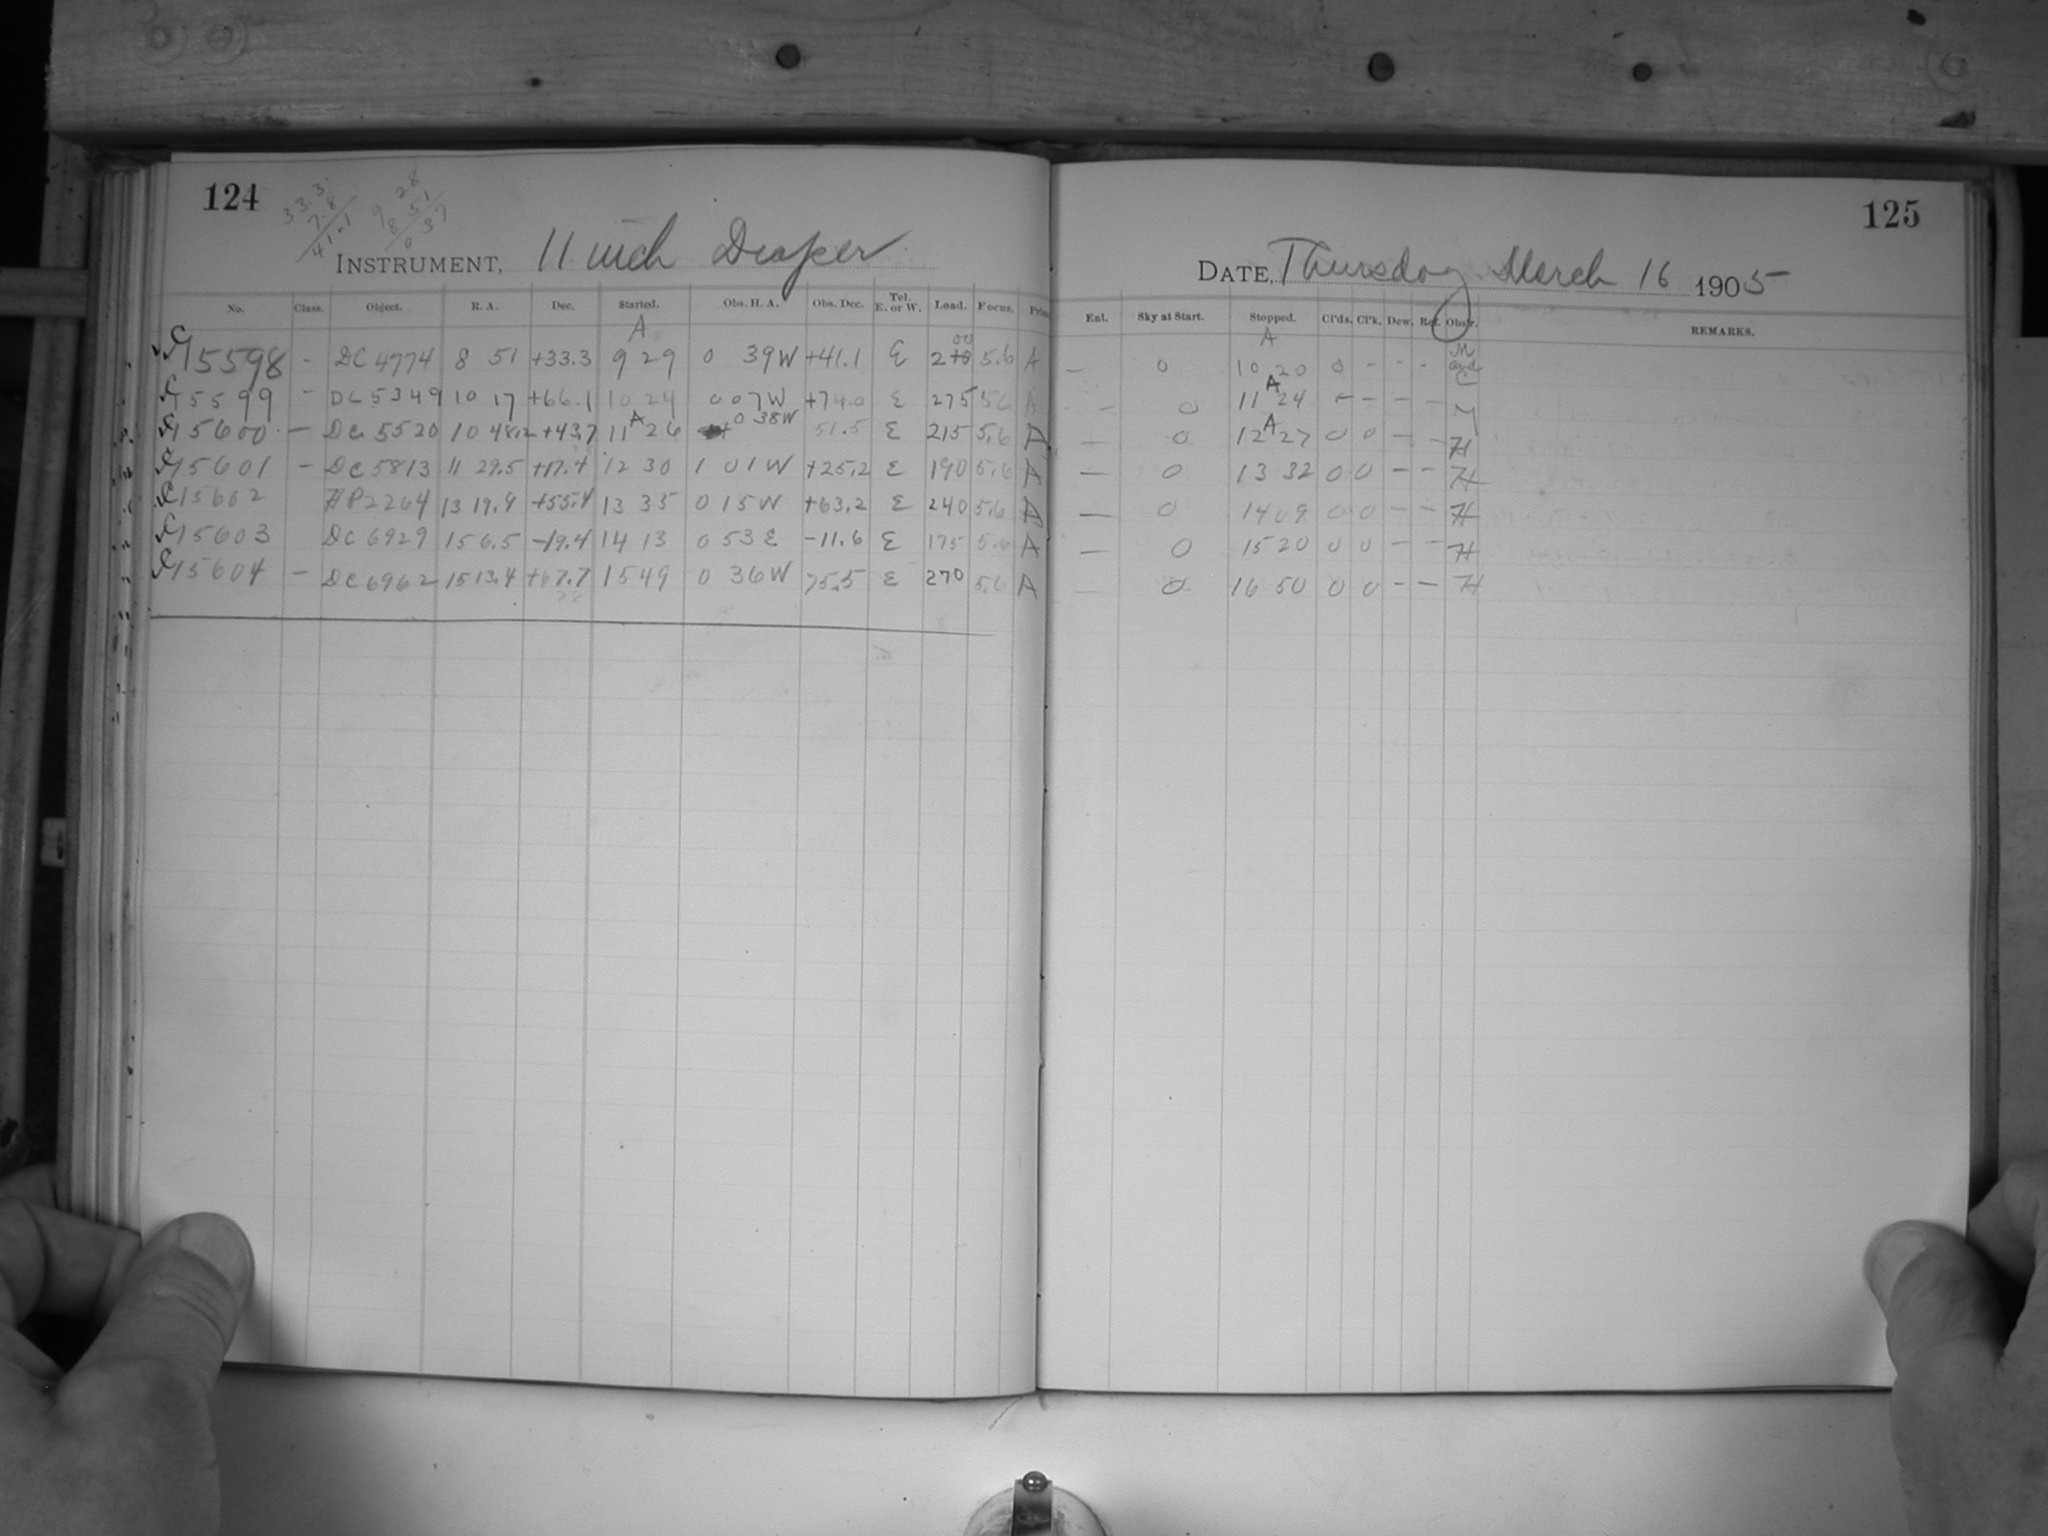 124
33.3
7.8
41.1
9 28
8 51
0 37
INSTRUMENT, 11 inch Draper
No. Class. Object. R. A. Dec. Started. Obs. H. A. Obs. Dec. Tel. E. or W. Load. Focus.
A
C 15598 - DC 4774 8 51 +33.3 9 29 0 39W +41.1 E 200 5.6 A
C 15599 - DC 5349 10 17 +66.1 10 24 0 07W +74.0 E 275 5.6 A
C 15600 - DC 5520 10 48.2 +43.7 11 A 26 0 38W 51.5 E 215 5.6 A
C 15601 - DC 5813 11 29.5 +17.4 12 30 1 01W +25.2 E 190 5.6 A
C 15602 HP 2264 13 19.9 +55.4 13 35 0 15W +63.2 E 240 5.6 A
C 15603 DC 6929 15 6.5 -19.4 14 13 0 53 E -11.6 E 175 5.6 A
C 15604 - DC 6962 15 13.4 +67.7 15 49 0 36W 75.5 E 270 5.6 A
125
DATE, Thursday March 16 1905
Ent. Sky at Start. Stopped. Cl'ds. Cl'k. Dew. Ref. Obs'r. REMARKS.
A
- 0 10 20 0 - - - M
- 0 11 A 24 - - - - M
- 0 12 A 27 0 0 - - H
- 0 13 32 0 0 - - H
- 0 14 09 0 0 - - H
- 0 15 20 0 0 - - H
- 0 16 50 0 0 - - H